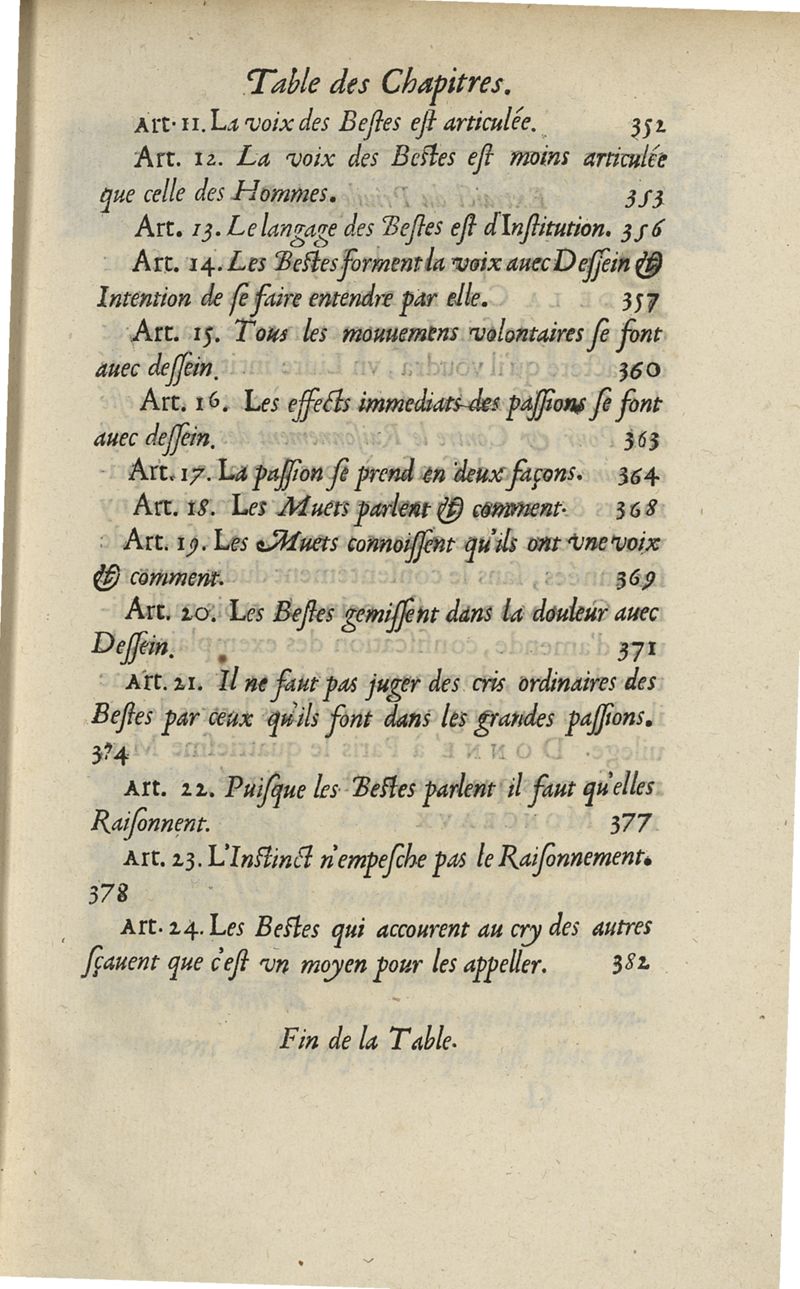 Table des Chapitres.
Art. 11. La voix des Bestes est articulée. 352
Art. 12. La voix des Bestes est moins articulée
que celle des Hommes. 353
Art. 13. Le langage des Bestes est d'Institution. 356
Art. 14. Les Bestes forment la voix auec Dessein &
Intention de se faire entendre par elle. 357
Art. 15. Tous les mouuemens volontaires se font
auec dessein. 360
Art. 16. Les effects immediats des passions se font
auec dessein. 363
Art. 17. La passion se prend en deux façons. 364
Art. 18. Les Muets parlent & comment. 368
Art. 19. Les Muets connoissent qu'ils ont vne voix
& comment. 369
Art. 20. Les Bestes gemissent dans la douleur auec
Dessein. 371
Art. 21. Il ne faut pas juger des cris ordinaires des
Bestes par ceux qu'ils font dans les grandes passions.
374
Art. 22. Puisque les Bestes parlent il faut qu'elles
Raisonnent. 377
Art. 23. L'Instinct n'empesche pas le Raisonnement.
378
Art. 24. Les Bestes qui accourent au cry des autres
sçauent que c'est vn moyen pour les appeller. 382
Fin de la Table.